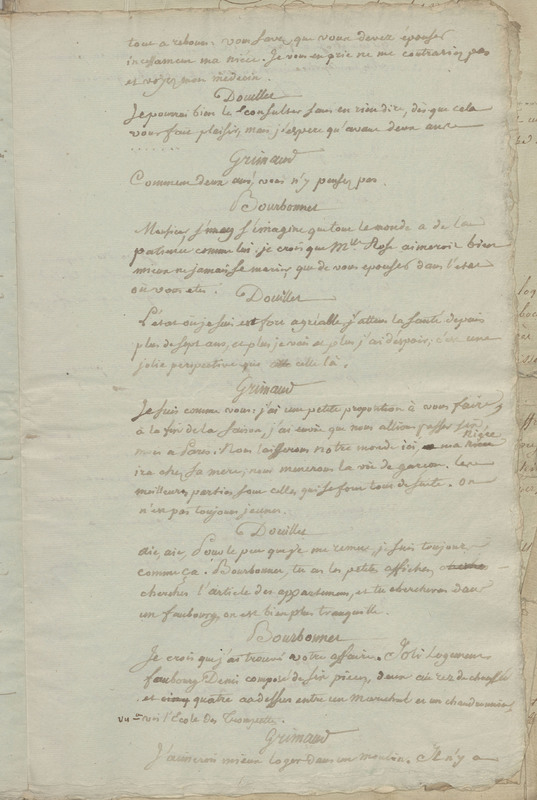 tout a rebours. vous savez que vous devez épouser
incessament ma niéce. Je vous en prie ne me contrariez pas
et voyez mon médecin.
Douillet
Je pourrai bien le consulter sans en rien dire, dès que cela
vous fait plaisir, mais j'espere qu'avant deux ans
.......
Grimaud
Comment deux ans, vous n'y pensez pas.
Bourbonner
Monsieur s'imagine que tout le monde a de la
patience comme lui. je crois que Mlle Rose aimeroit bien
mieux ne jamais se marier, que de vous épouser dans l'état
où vous etes.
Douillet
L'état où je suis est fort agréable, j'attens la santé depuis
plus de sept ans, et plus je vais et plus j'ai d'espoir; c'est une
jolie perspective que celle là.
Grimaud
Je suis comme vous; j'ai une petite proposition à vous faire,
à la fin de la saison, j'ai envie que nous allions passer six
mois a Paris. Nous laisserons notre monde ici, ma Niéce
ira chez sa mere; nous menerons la vie de garçon. les
meilleures parties sont celles qui se font tout de suite. on
n'est pas toujours jeunes.
Douillet
aie, aie, Pour le peu que je me remue je suis toujours
comme ça. Bourbonner, tu as les petites affiches,
cherches l'article des appartemens, et tu chercheras dans
un faubourg, on est bien plus tranquille.
Bourbonner
Je crois que j'ai trouvé votre affaire. Joli logement
faubourg Denis composé de six pieces, deux au rez de chaussée
et cinq quatre au dessus entre un marechal et un chaudronnier,
vis-à-vis l'Ecole des Trompettes.
Grimaud
J'aimerois mieux loger dans un moulin. Il n'y a